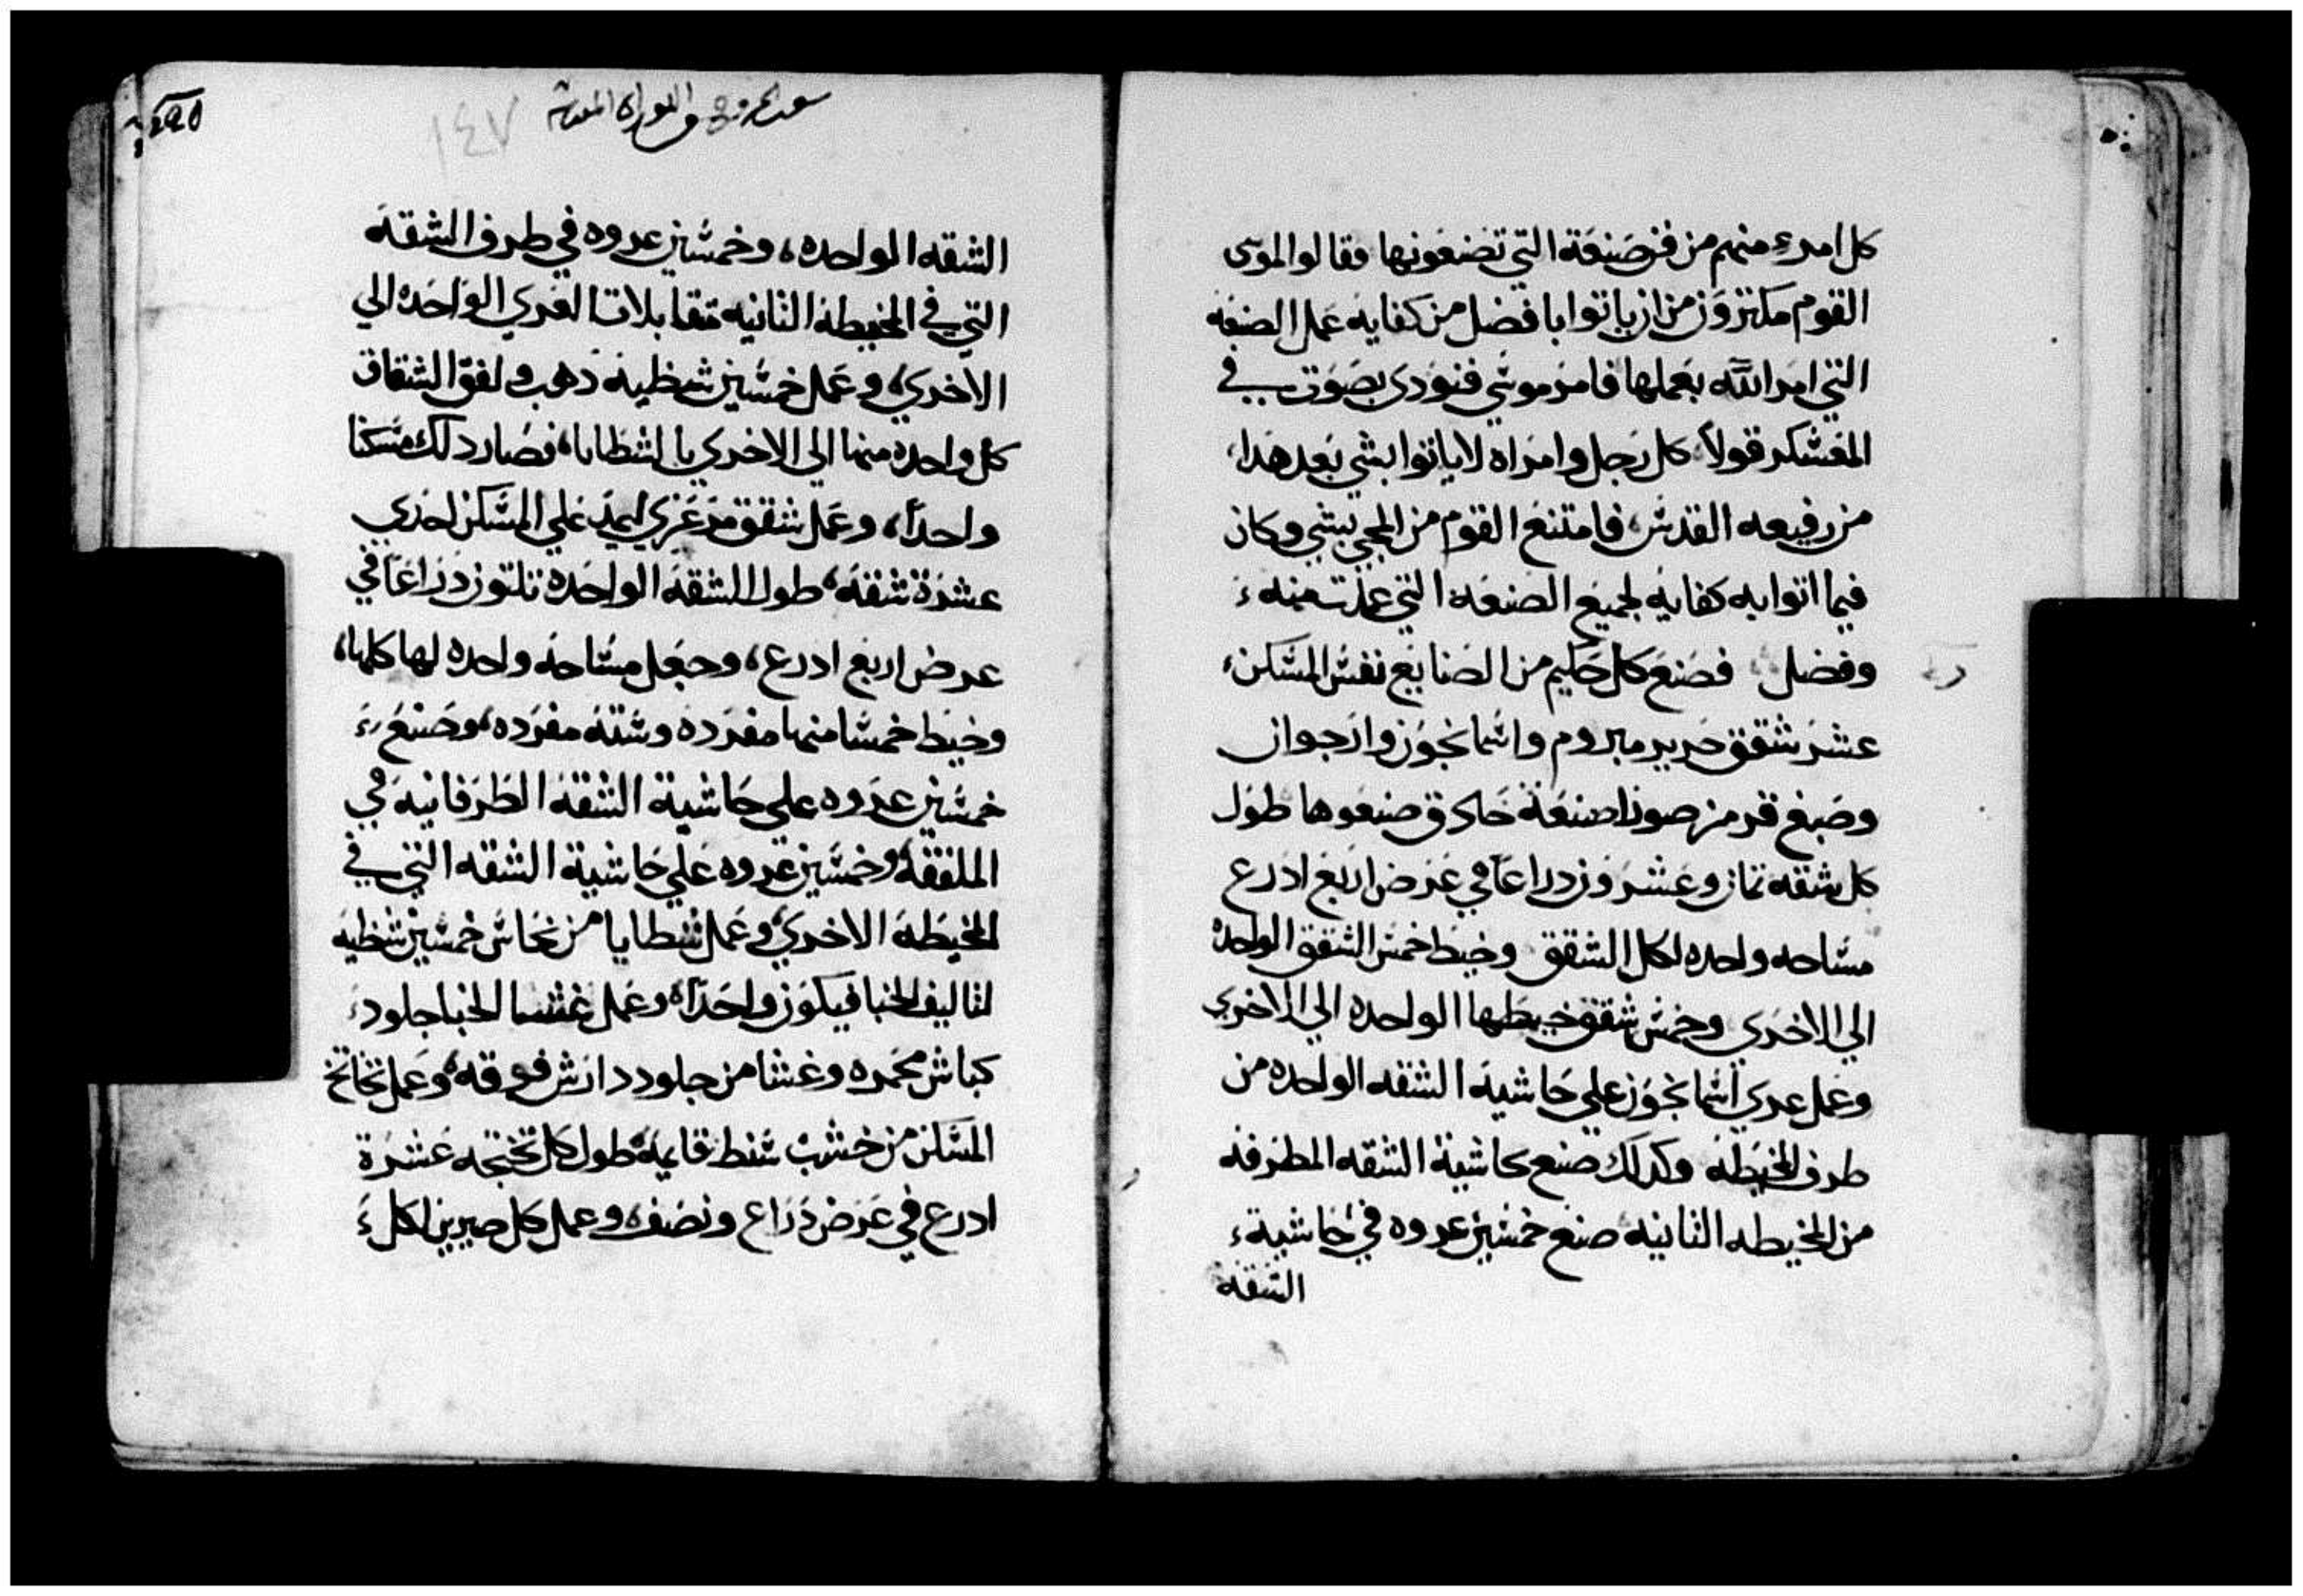 كل امرء منهم من فن صنعة التي تصنعونها فقالوا لموسى
القوم مكتزون من ان ياتوا بافضل من كفايه عمل الصنعه
التي امر الله بعملها فامر موسي فنودي بصوت في
المعسكر قولاً كل رجل وامراه لا ياتوا بشي بعد هذا،
من رفيعه القدس، فامتنع القوم من المجي بشي وكان
فيما اتوا به كفايه لجميع الصنعه التي عملت منه
وفضل فصنع كل حكيم من الصنايع نفس المسكن
عشر شقق حرير مبروم واسمانجون وارجوان
وصبغ قرمز صورا صنعة حادق صنعوها طول
كل شقه تمان وعشرون دراعاً في عرض اربع ادرع
مساحه واحده لكل الشقق وخيط خمس الشقق الواحده
الي الاخري وخمس شقق خيطها الواحده الي الاخري
وعمل عري اسمانجون علي حاشية الشقه الواحده من
طرف المخيطه وكدلك صنع بحاشية الشقه المطرفه
من المخيطه الثانيه صنع خمسين عروه في حاشية
الشقه
سفر الخروج من التوراه المقدسة
١٤٧
الشقه الواحده، وخمسين عروه في طرف الشقه
التي في المخيطه الثانيه متقابلات العري الواحده الي
الاخري، وعمل خمسين شظيه دهب ولفق الشقاق
كل واحده منها الي الاخري بالشظايا، فصار دلك مسكنا
واحداً، وعمل شقق مرعزي ليمد علي المسكن احدي
عشرة شقه، طول الشقه الواحده تلتون دراعاً في
عرض اربع ادرع، وجعل مساحه واحده لها كلها،
وخيط خمسا منها مفرده وسته مفرده، وصنع
خمسين عروه علي حاشية الشقه الطرفانيه في
الملفقه، وخمسين عروه علي حاشية الشقه التي في
المخيطه الاخري، وعمل شظايا من نحاس خمسين شظيه
لتاليف الخبا فيكون واحداً، وعمل غشا الخبا جلود
كباش محمره وغشا من جلود دارش فوقه، وعمل تخاتج
المسكن من خشب سنط قايمة، طول كل تختجه عشرة
ادرع في عرض دراع ونصف، وعمل كل صيرين لكل